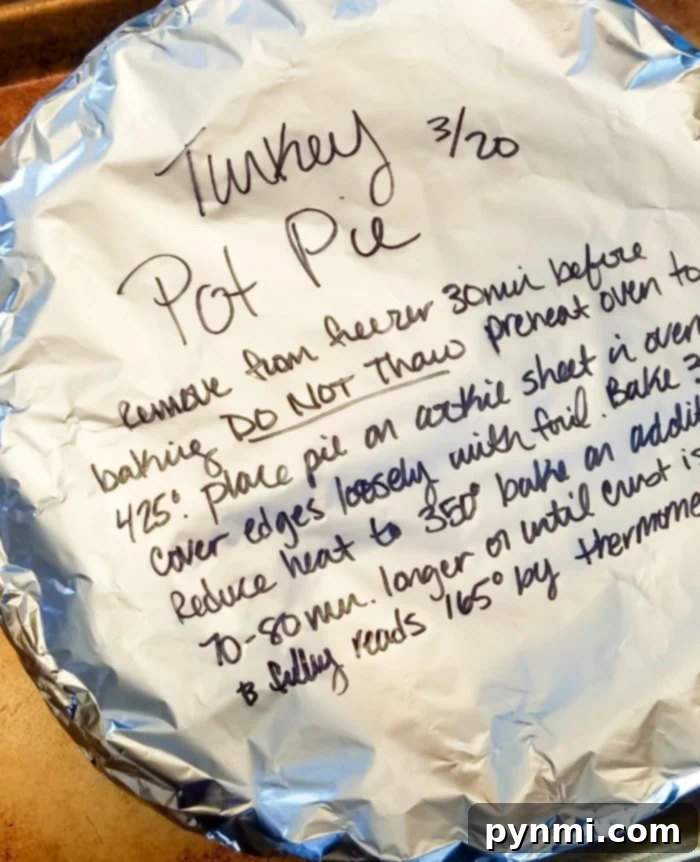 Turkey 3/20
Pot Pie
Remove from freezer 30min before
baking DO NOT Thaw preheat oven to
425°. Place pie on cookie sheet in oven
cover edges loosely with foil. Bake 3
Reduce heat to 350° bake an addit
70-80 min. longer or until crust is
& filling reads 165° by thermome
pynmi.com